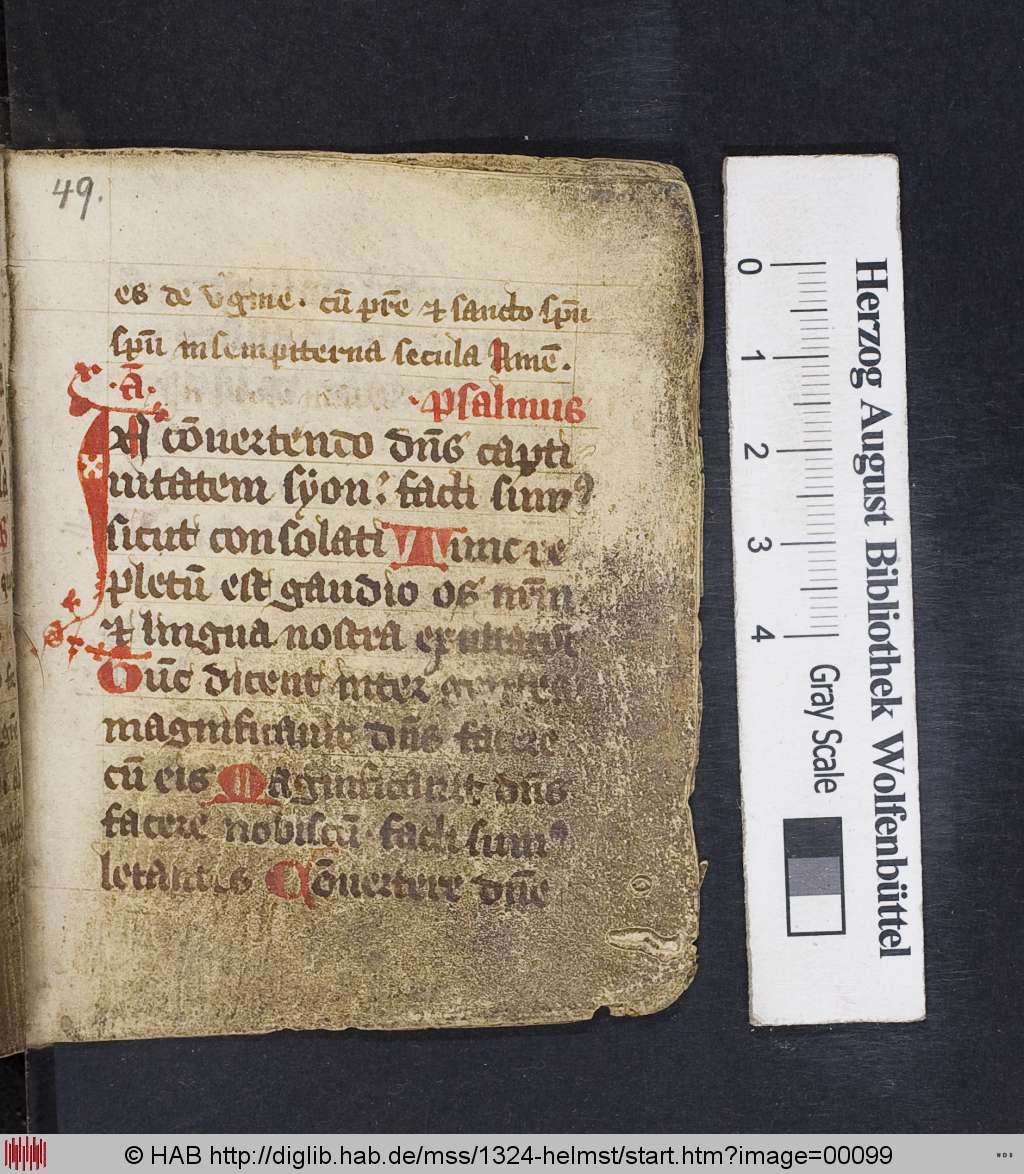 49.
es de v̾gine. cū pr̄e ⁊ sancto spū
spū in sempiterna secula Amē.
.ā. .psalmus
IN cōuertendo dn̄s capti
uitatem syon: facti sumꝰ
sicut consolati Tunc re
pletū est gaudio os nr̄m.
⁊ lingua nostra exultatōe
Tūc dicent inter gentes
magnificauit dn̄s facere
cū eis Magnificauit dn̄s
facere nobiscū. facti sumꝰ
letantes Cōuertere dn̄e
0 1 2 3 4
Gray Scale
Herzog August Bibliothek Wolfenbüttel
© HAB http://diglib.hab.de/mss/1324-helmst/start.htm?image=00099